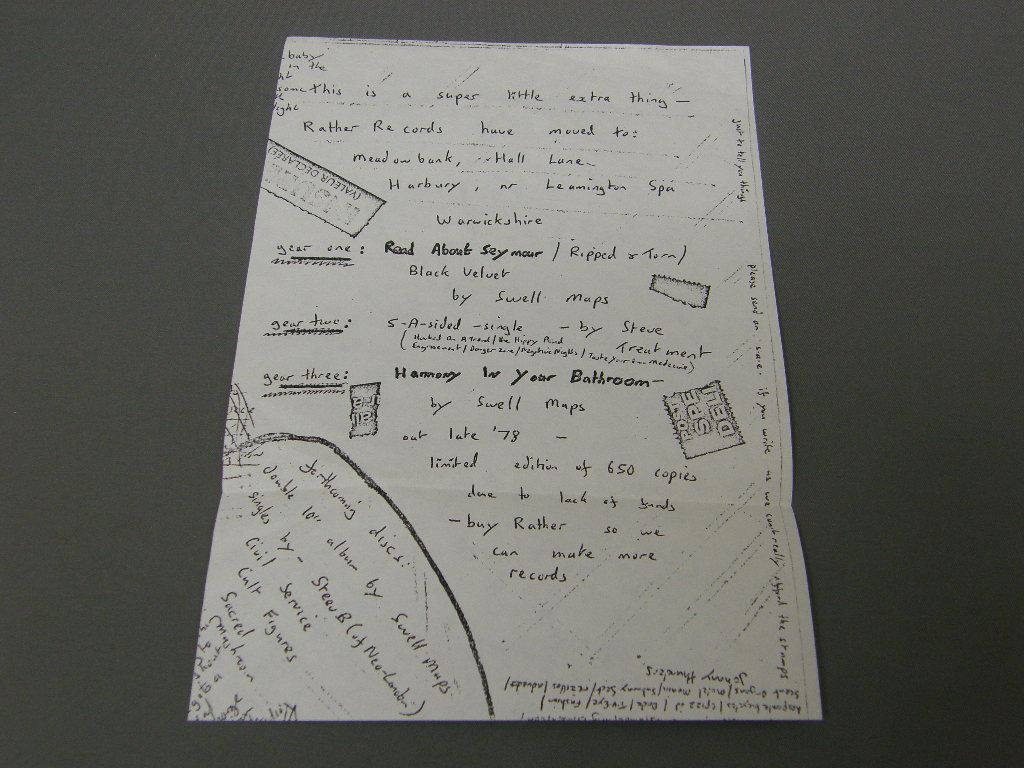 baby
in the
light
This is a super little extra thing —
Rather Records have moved to:
Meadowbank, Hall Lane
Harbury, nr Leamington Spa
Warwickshire
(VALEUR DECLARÉE)
gear one: Read About Seymour / Ripped & Torn /
Black Velvet
by Swell Maps
gear two: 5-A-sided-single — by Steve
Treatment
(Hooked On A Trend / The Hippy Posed
Engrossment / Danger Zone / Negative Nights / Taste Your Own Medicine)
gear three: Harmony In Your Bathroom —
by Swell Maps
out late '78 —
limited edition of 650 copies
due to lack of funds
— buy Rather so we
can make more
records
forthcoming discs:
double lp album by Swell Maps
singles by — Steev B (of Neo-London)
Civil Service
Cult Figures
Sacred
Mushroom
just to tell you things
please send an s.a.e. if you write us we can't really afford the stamps
desperate bicycles / spizz oil / TV Eye / Fashion /
Scent Organs / Social Menace / Subway Sect / rezillos / adverts /
Johnny Thunders